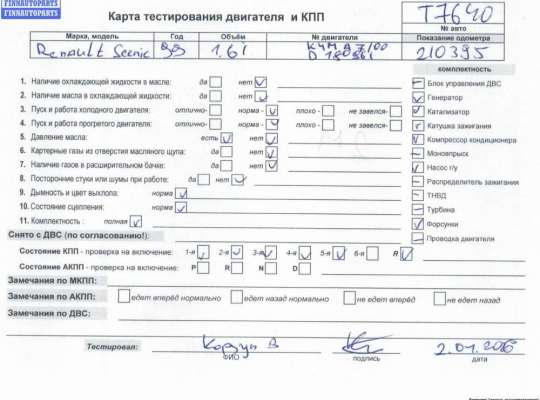 FINNAUTOPARTS
FINNAUTOPARTS
Карта тестирования двигателя и КПП
T7640
№ авто
Марка, модель Год Объём № двигателя Показание одометра
Renault Scenic 99 1.6i K4M A 7/00 210395
комплектность
1. Наличие охлаждающей жидкости в масле: да нет
Блок управления ДВС
2. Наличие масла в охлаждающей жидкости: да нет
Генератор
3. Пуск и работа холодного двигателя: отлично- норма - плохо - не завелся-
Катализатор
4. Пуск и работа прогретого двигателя: отлично- норма - плохо - не завелся-
Катушка зажигания
5. Давление масла: есть нет
Компрессор кондиционера
6. Картерные газы из отверстия масляного щупа: да нет
Моновпрыск
7. Наличие газов в расширительном бачке: да нет
Насос г/у
8. Посторонние стуки или шумы при работе: да нет
Распределитель зажигания
9. Дымность и цвет выхлопа: норма
ТНВД
10. Состояние сцепления: норма
Турбина
11. Комплектность : полная
Форсунки
Снято с ДВС (по согласованию!):
Проводка двигателя
Состояние КПП - проверка на включение: 1-я 2-я 3-я 4-я 5-я 6-я R
Состояние АКПП - проверка на включение: P R N D
Замечания по МКПП:
Замечания по АКПП: едет вперёд нормально едет назад нормально не едет вперёд не едет назад
Замечания по ДВС:
Тестировал: В 2.01.2016
ФИО подпись дата